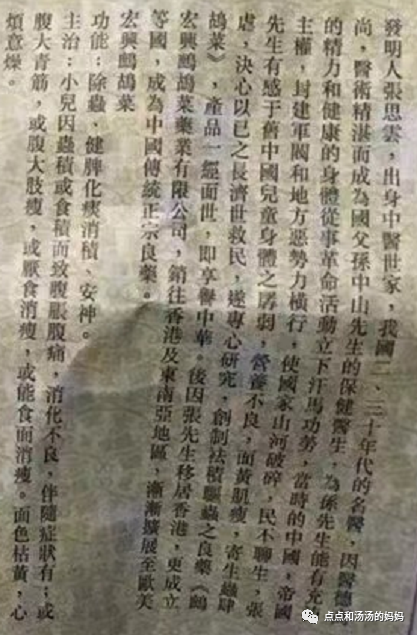 發明人張思雲，出身中醫世家，我國二、三十年代的名醫，因醫德高
尚，醫術精湛而成為國父孫中山先生的保健醫生，為孫先生能有充沛
的精力和健康的身體從事革命活動立下汗馬功勞，當時的中國，帝國
主權，封建軍閥和地方惡勢力橫行，使國家山河破碎，民不聊生，張
先生有感于舊中國兒童身體之孱弱，營養不良，面黃肌瘦，寄生蟲肆
虐，決心以已之長濟世救民，遂專心研究，創制祛積驅蟲之良藥《鷓
鴣菜》，產品一經面世，即享譽中華。後因張先生移居香港，更成立
宏興鷓鴣菜藥業有限公司，銷往香港及東南亞地區，漸漸擴展全歐美
等國，成為中國傳統正宗良藥。
宏興鷓鴣菜
功能：除蟲、健脾化痰消積、安神。
主治：小兒因蟲積或食積而致腹脹腹痛，消化不良，伴隨症狀有：或
腹大青筋，或腹大肢瘦，或厭食消瘦，或能食面消瘦。面色枯黃，心
煩意燥。
点点和汤汤的妈妈